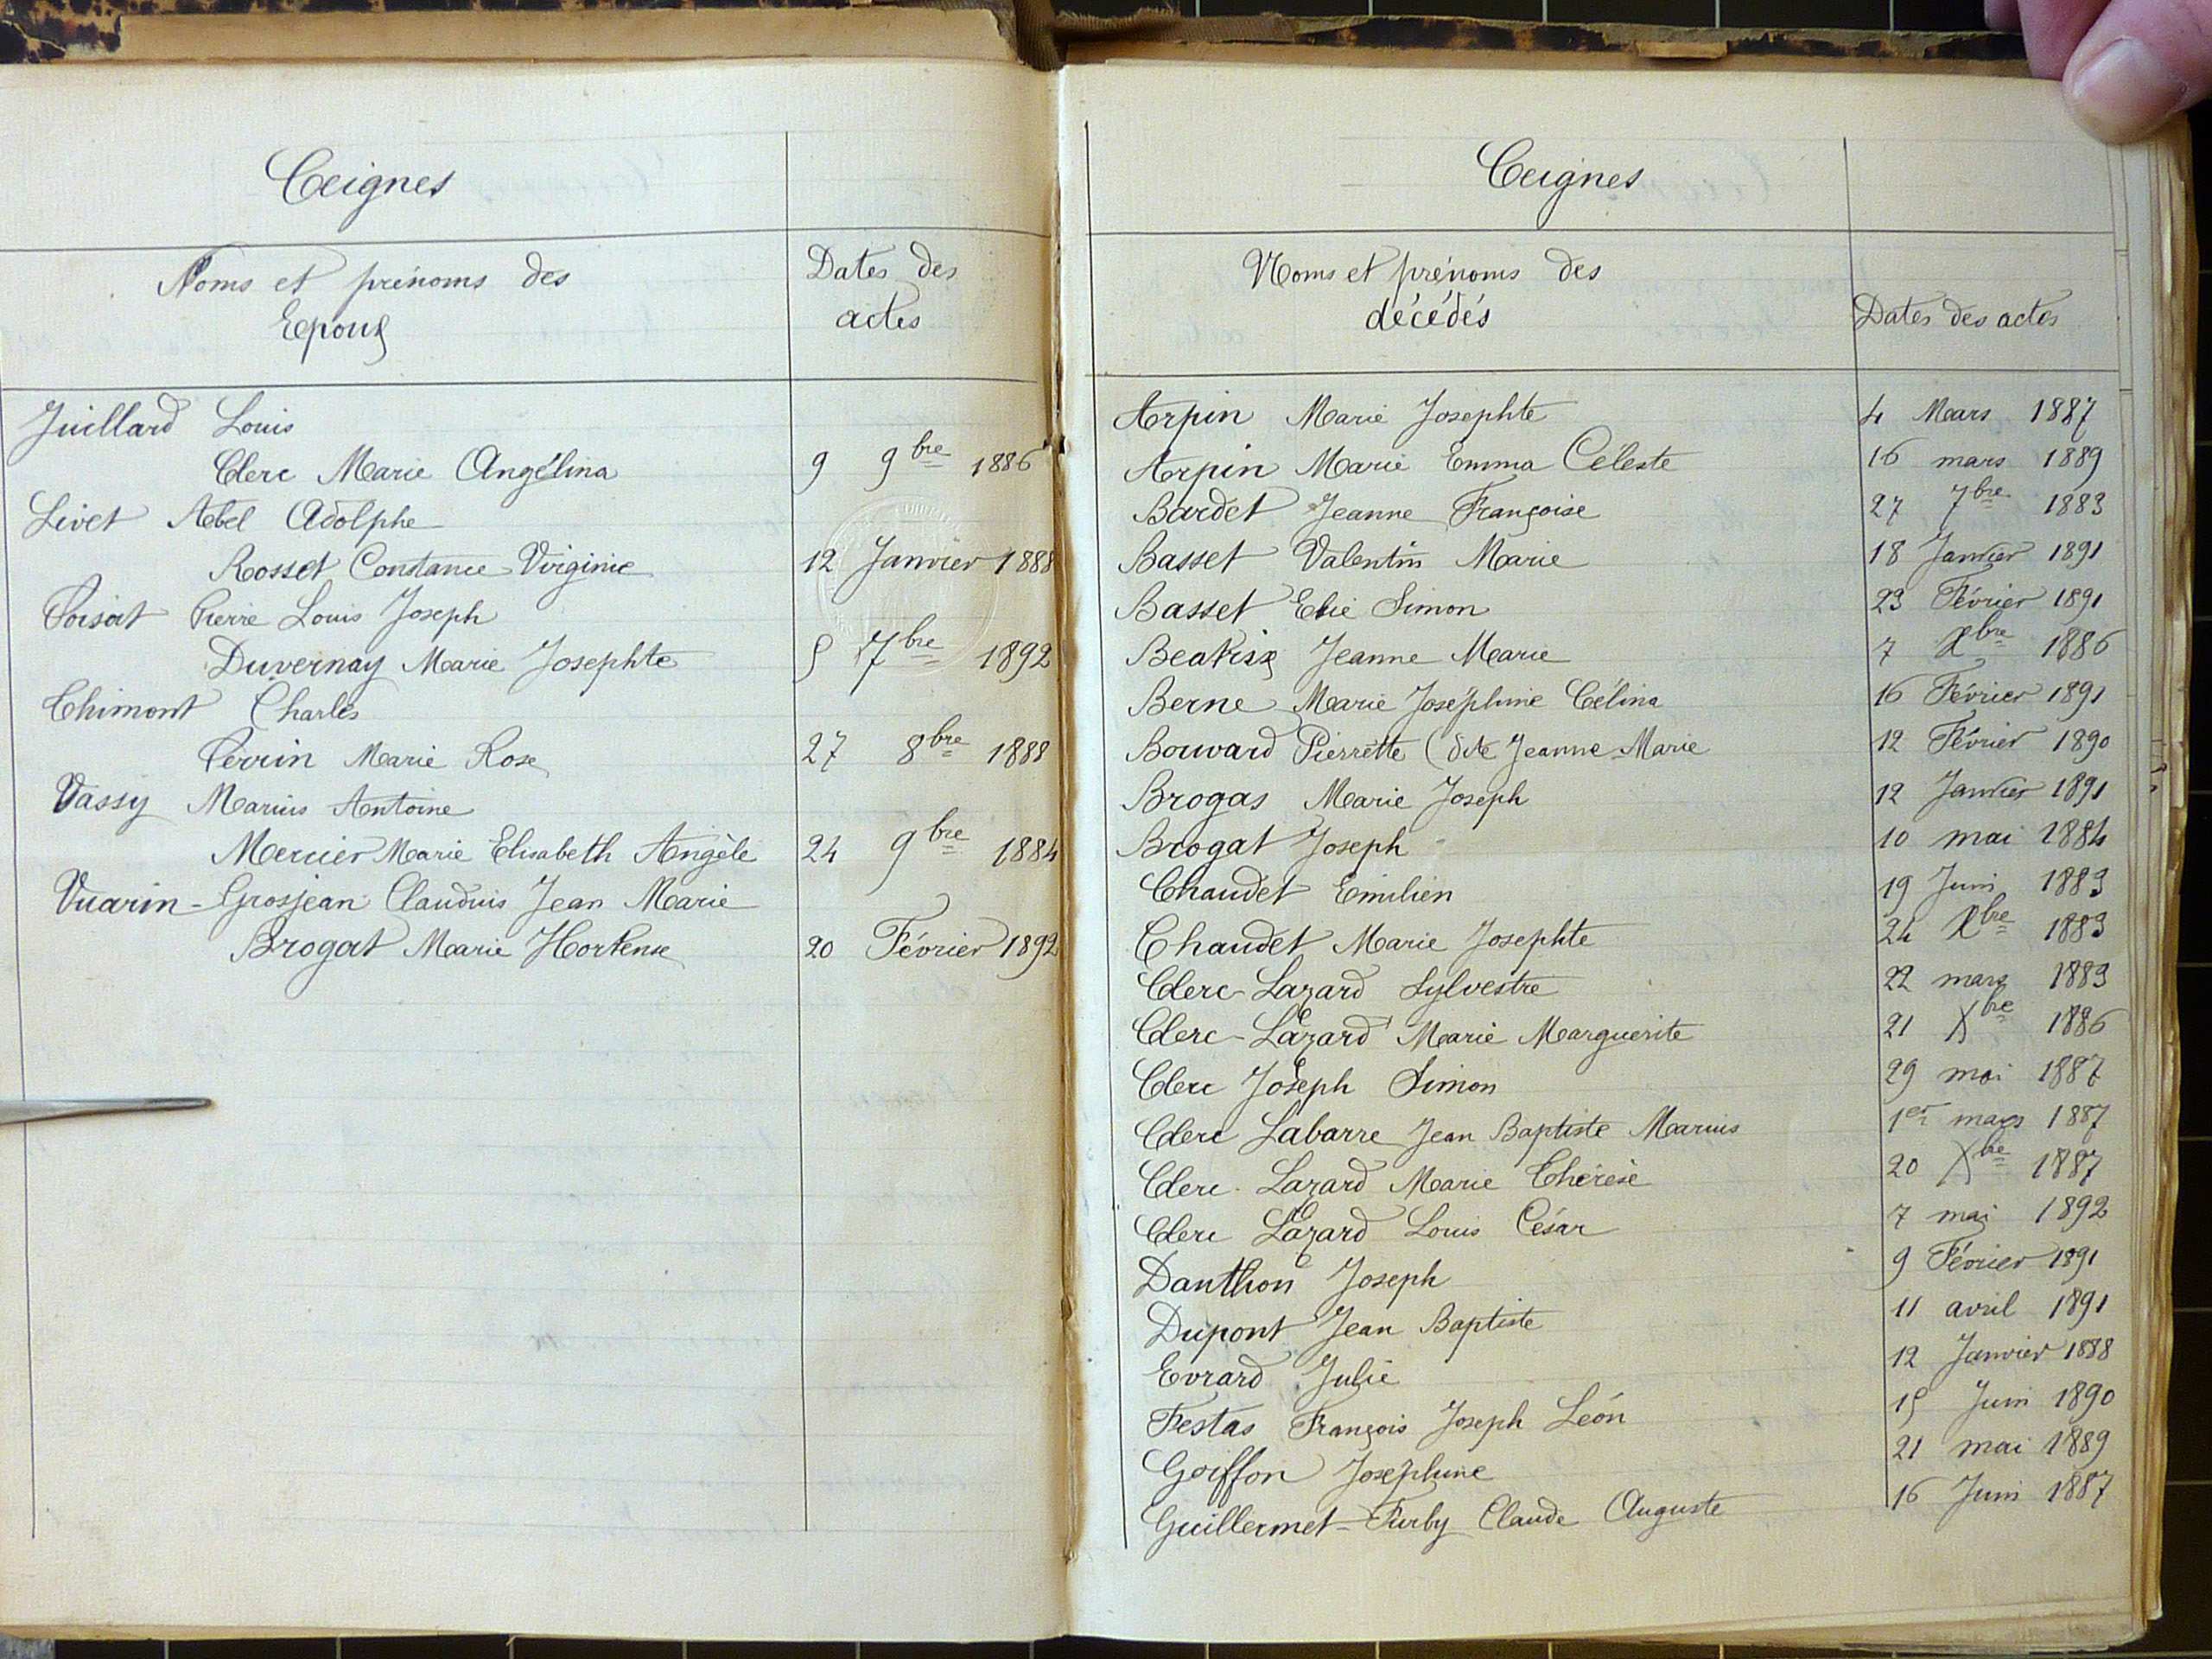 Ceignes
Noms et prénoms des
Epoux
Dates des
actes
Juillard Louis
Clerc Marie Angélina 9 9bre 1886
Livet Abel Adolphe
Rosset Constance Virginie 12 Janvier 1888
Poisat Pierre Louis Joseph
Duvernay Marie Josephte 5 7bre 1892
Thimont Charles
Perrin Marie Rose 27 8bre 1888
Vassy Marius Antoine
Mercier Marie Elisabeth Angèle 24 9bre 1884
Vuarin-Grosjean Claudius Jean Marie
Brogat Marie Hortense 20 Février 1892
Ceignes
Noms et prénoms des
décédés
Dates des actes
Arpin Marie Josephte 4 Mars 1887
Arpin Marie Emma Céleste 16 mars 1889
Bardet Jeanne Françoise 27 7bre 1883
Basset Valentin Marie 18 Janvier 1891
Basset Elie Simon 23 Février 1891
Beatrix Jeanne Marie 7 Xbre 1886
Berne Marie Joséphine Célina 16 Février 1891
Bouvard Pierrette (dite Jeanne-Marie 12 Février 1890
Brogas Marie Joseph 12 Janvier 1891
Brogat Joseph 10 mai 1884
Chaudet Emilien 19 Juin 1883
Chaudet Marie Josephte 24 Xbre 1883
Clerc-Lazard Sylvestre 22 mars 1883
Clerc-Lazard Marie Marguerite 21 Xbre 1886
Clerc Joseph Simon 29 mai 1887
Clerc Labarre Jean Baptiste Marius 1er mars 1887
Clerc-Lazard Marie Thérèse 20 Xbre 1887
Clerc Lazard Louis César 7 mai 1892
Danthon Joseph 9 Février 1891
Dupont Jean Baptiste 11 avril 1891
Evrard Julie 12 Janvier 1888
Festas François Joseph Léon 15 Juin 1890
Goiffon Joséphine 21 mai 1889
Guillermet-Furby Claude Auguste 16 Juin 1887